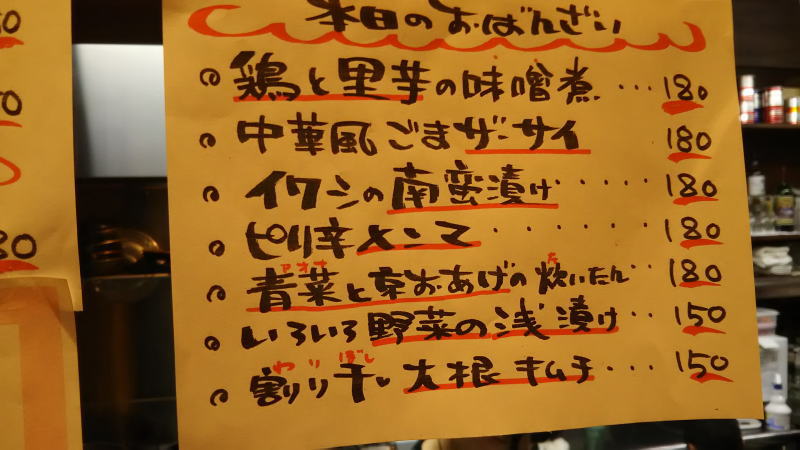 本日のおばんざい
鶏と里芋の味噌煮…180
中華風ごまザーサイ 180
イワシの南蛮漬け······180
ピリ辛メンマ······180
青菜と京おあげの炊いたん··180
いろいろ野菜の浅漬け··150
割り干し大根キムチ···150